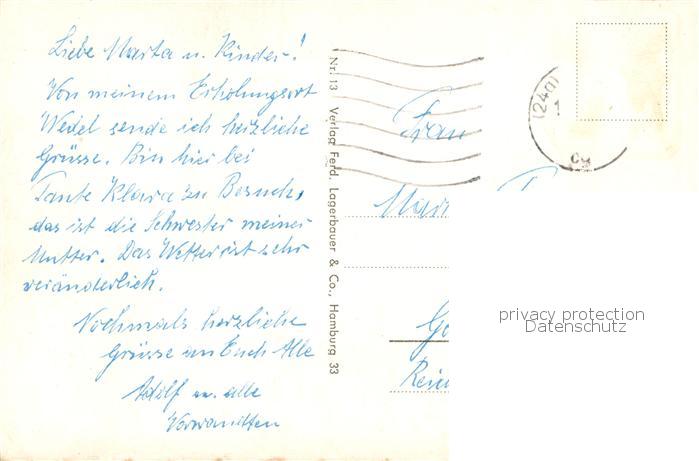 Liebe Marta u. Kinder!
Von meinem Erholungsort
Wedel sende ich herzliche
Grüsse. Bin hier bei
Tante Klara zu Besuch,
das ist die Schwester meiner
Mutter. Das Wetter ist sehr
veränderlich.
Nochmals herzliche
Grüsse an Euch Alle
Adolf u. alle
Verwandten
Nr. 13 Verlag Ferd. Lagerbauer & Co., Hamburg 33
(24a)
1
Frau
Mar
T
Go
Rein
privacy protection
Datenschutz